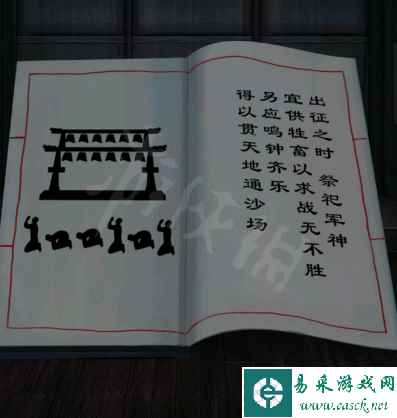 出征之时 祭祀军神
宜供牲畜以求战无不胜
另应鸣钟齐乐
得以贯天地通沙场
易采游戏网
www.easck.net